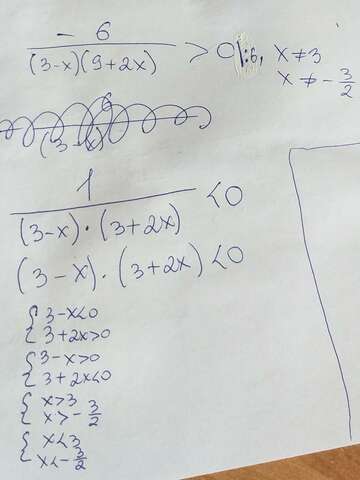 - 6 / (3-x)(9+2x) > 0 |:6, x ≠ 3
x ≠ - 3/2
1 / (3-x)·(3+2x) < 0
(3-x)·(3+2x) < 0
{ 3-x<0
3+2x>0
{ 3-x>0
3+2x<0
{ x>3
x>-3/2
{ x<3
x<-3/2